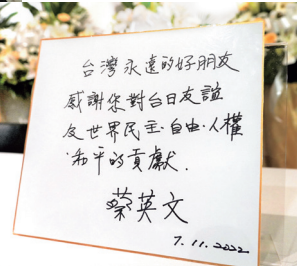 台灣永遠的好朋友
感謝您對台日友誼
及世界民主·自由·人權
和平的貢獻.
蔡英文
7.11.2022